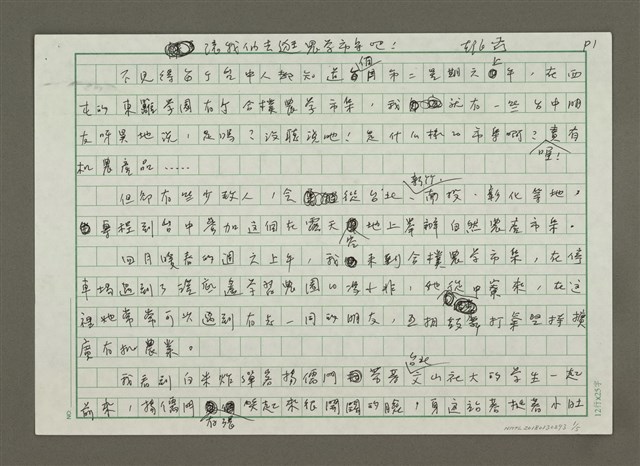 讓我們去逛農學市集吧！ P1
不見得每個台中人都知道每個月第二星期六上午，在西
屯的東離學園有個合樸農學市集，我就有一些台中朋
友訝異地說，是嗎？沒聽說吔！是什麼樣的市集啊？賣有
機農產品……喔！
但卻有些少數人，會從台北、新竹、南投、彰化等地，
專程到台中參加這個在露天空地上舉辦自然農產市集。
四月暖春的週六上午，我來到合樸農學市集，在停
車場遇到了溪底遙學習農園的馮小非，她從中寮來，在這
裡她常常可以遇到有志一同的朋友，互相鼓舞打氣堅持推
廣有機農業。
我看到白米炸彈客楊儒門帶著台北文山社大的學生一起
前來，楊儒門笑起來很開闊的臉，有張身邊站著挺著小肚
12行×25字